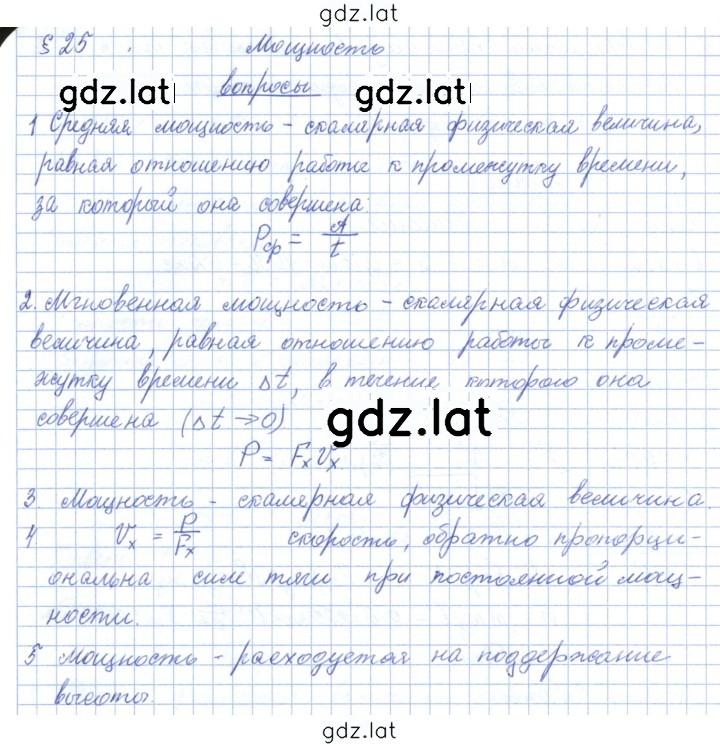 gdz.lat
§ 25 . Мощность
gdz.lat вопросы gdz.lat
1 Средняя мощность - скалярная физическая величина,
равная отношению работы к промежутку времени,
за который она совершена:
Pср = A/t
2. Мгновенная мощность - скалярная физическая
величина, равная отношению работы к проме-
жутку времени Δt, в течение которого она
совершена (Δt → 0)
gdz.lat
P = FₓVₓ
3 Мощность - скалярная физическая величина.
4 Vₓ = P/Fₓ скорость, обратно пропорци-
ональна силе тяги при постоянной мощ-
ности.
5 Мощность - расходуется на поддержание
высоты.
gdz.lat